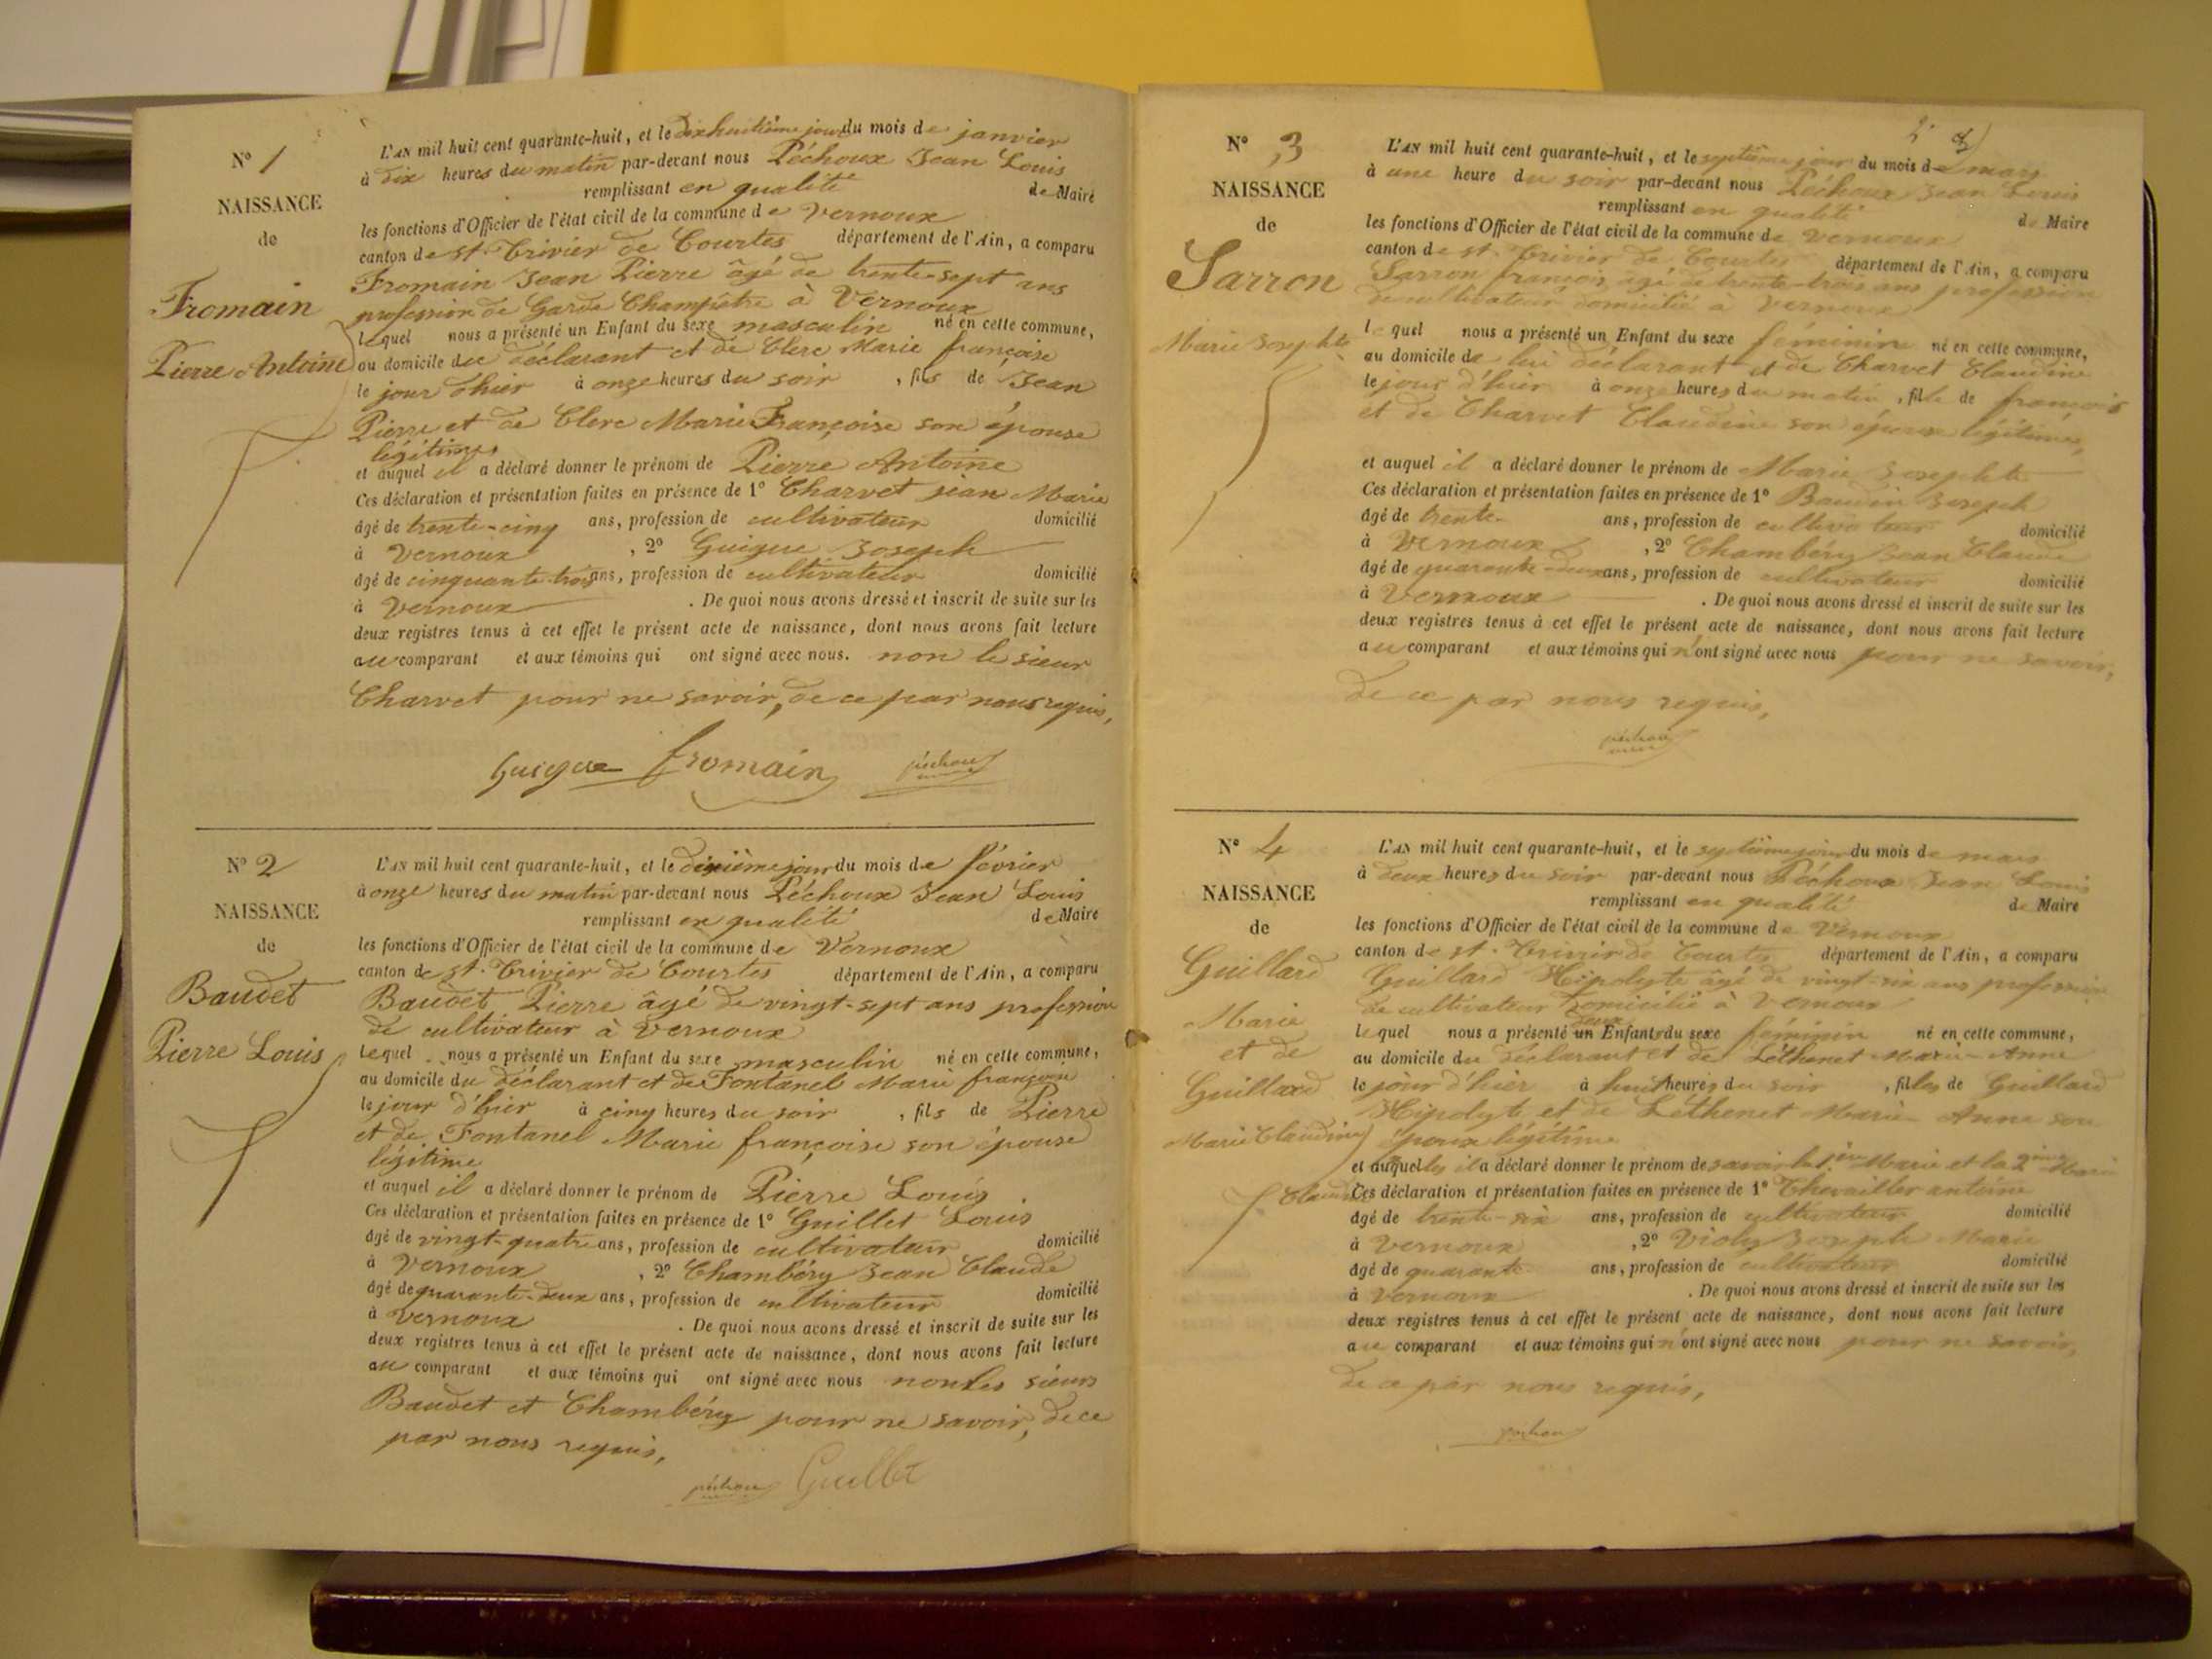 N° 1
NAISSANCE
de
Fromain
Pierre Antoine
L'AN mil huit cent quarante-huit, et le dixhuitième jour du mois de janvier
à dix heures du matin par-devant nous Péchoux Jean Louis
remplissant en qualité de Maire
les fonctions d'Officier de l'état civil de la commune de Vernoux
canton de st. Trivier de Courtes département de l'Ain, a comparu
Fromain Jean Pierre âgé de trente-sept ans
profession de Garde Champêtre à Vernoux
lequel nous a présenté un Enfant du sexe masculin né en cette commune,
au domicile du déclarant et de Clerc Marie françoise
le jour d'hier à onze heures du soir, fils de Jean
Pierre et de Clerc Marie Françoise son épouse
légitime
et auquel il a déclaré donner le prénom de Pierre Antoine
Ces déclaration et présentation faites en présence de 1° Charvet jean Marie
âgé de trente-cinq ans, profession de cultivateur domicilié
à Vernoux, 2° Guigue Joseph
âgé de cinquante-trois ans, profession de cultivateur domicilié
à Vernoux. De quoi nous avons dressé et inscrit de suite sur les
deux registres tenus à cet effet le présent acte de naissance, dont nous avons fait lecture
au comparant et aux témoins qui ont signé avec nous. non le sieur
Charvet pour ne savoir, de ce par nous requis,
Guigue fromain péchoux
N° 2
NAISSANCE
de
Baudet
Pierre Louis
L'AN mil huit cent quarante-huit, et le dixième jour du mois de février
à onze heures du matin par-devant nous Péchoux Jean Louis
remplissant en qualité de Maire
les fonctions d'Officier de l'état civil de la commune de Vernoux
canton de st. Trivier de Courtes département de l'Ain, a comparu
Baudet Pierre âgé de vingt-sept ans profession
de cultivateur à Vernoux
lequel nous a présenté un Enfant du sexe masculin né en cette commune,
au domicile du déclarant et de Fontanel Marie françoise
le jour d'hier à cinq heures du soir, fils de Pierre
et de Fontanel Marie françoise son épouse
légitime
et auquel il a déclaré donner le prénom de Pierre Louis.
Ces déclaration et présentation faites en présence de 1° Guillet Louis
âgé de vingt-quatre ans, profession de cultivateur domicilié
à Vernoux, 2° Chambéry Jean Claude
âgé de quarante-deux ans, profession de cultivateur domicilié
à Vernoux. De quoi nous avons dressé et inscrit de suite sur les
deux registres tenus à cet effet le présent acte de naissance, dont nous avons fait lecture
au comparant et aux témoins qui ont signé avec nous non les sieurs
Baudet et Chambéry pour ne savoir, de ce
par nous requis,
péchoux Guillet
N° 3
NAISSANCE
de
Sarron
Marie Josephte
L'AN mil huit cent quarante-huit, et le septième jour du mois de mars
à une heure du soir par-devant nous Péchoux Jean Louis
remplissant en qualité de Maire
les fonctions d'Officier de l'état civil de la commune de Vernoux
canton de st. Trivier de Courtes département de l'Ain, a comparu
Sarron françois âgé de trente-trois ans profession
de cultivateur domicilié à Vernoux
lequel nous a présenté un Enfant du sexe féminin né en cette commune,
au domicile de lui déclarant et de Charvet Claudine
le jour d'hier à onze heures du matin, fille de françois
et de Charvet Claudine son épouse légitime,
et auquel il a déclaré donner le prénom de Marie Josephte
Ces déclaration et présentation faites en présence de 1° Baudin Joseph
âgé de trente ans, profession de cultivateur domicilié
à Vernoux, 2° Chambéry Jean Claude
âgé de quarante-deux ans, profession de cultivateur domicilié
à Vernoux. De quoi nous avons dressé et inscrit de suite sur les
deux registres tenus à cet effet le présent acte de naissance, dont nous avons fait lecture
au comparant et aux témoins qui n'ont signé avec nous pour ne savoir,
de ce par nous requis,
péchoux
N° 4
NAISSANCE
de
Guillard
Marie
et de
Guillard
Marie Claudine
L'AN mil huit cent quarante-huit, et le septième jour du mois de mars
à deux heures du soir par-devant nous Péchoux Jean Louis
remplissant en qualité de Maire
les fonctions d'Officier de l'état civil de la commune de Vernoux
canton de st. Trivier de Courtes département de l'Ain, a comparu
Guillard Hipolyte âgé de vingt-six ans profession
de cultivateur domicilié à Vernoux
deux
lequel nous a présenté un Enfants du sexe féminin né en cette commune,
au domicile du déclarant et de Léthenet Marie-Anne
le jour d'hier à huit heures du soir, filles de Guillard
Hipolyte et de Léthenet Marie-Anne son
épouse légitime
et auquelles il a déclaré donner le prénom de savoir la 1ière Marie et la 2ième Marie
Claudine
Ces déclaration et présentation faites en présence de 1° Thevailler antoine
âgé de trente-six ans, profession de cultivateur domicilié
à Vernoux, 2° Violy Joseph Marie
âgé de quarante ans, profession de cultivateur domicilié
à Vernoux. De quoi nous avons dressé et inscrit de suite sur les
deux registres tenus à cet effet le présent acte de naissance, dont nous avons fait lecture
au comparant et aux témoins qui n'ont signé avec nous pour ne savoir,
de ce par nous requis,
péchoux